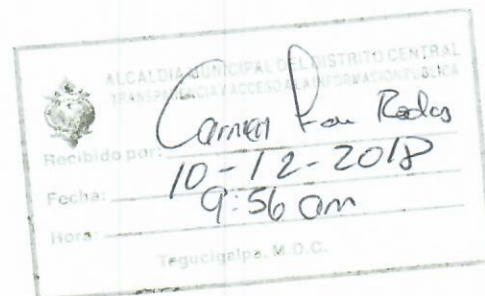 ALCALDIA MUNICIPAL DEL DISTRITO CENTRAL
TRANSPARENCIA Y ACCESO A LA INFORMACION PUBLICA
Recibido por: Carmen Rodas
Fecha: 10-12-2018
Hora: 9:56 am
Tegucigalpa, M.D.C.